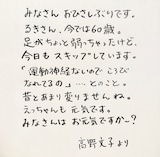 みなさん おひさしぶりです。
るきさん、今では60歳。
足がちょっと弱っちゃったけど、
今日も スキップしています。
「運動神経ないので ころび
なれてるの」…… とのこと。
昔とあまり変りませんね。
えっちゃんも元気です。
みなさんは お元気ですか〜?
高野文子より